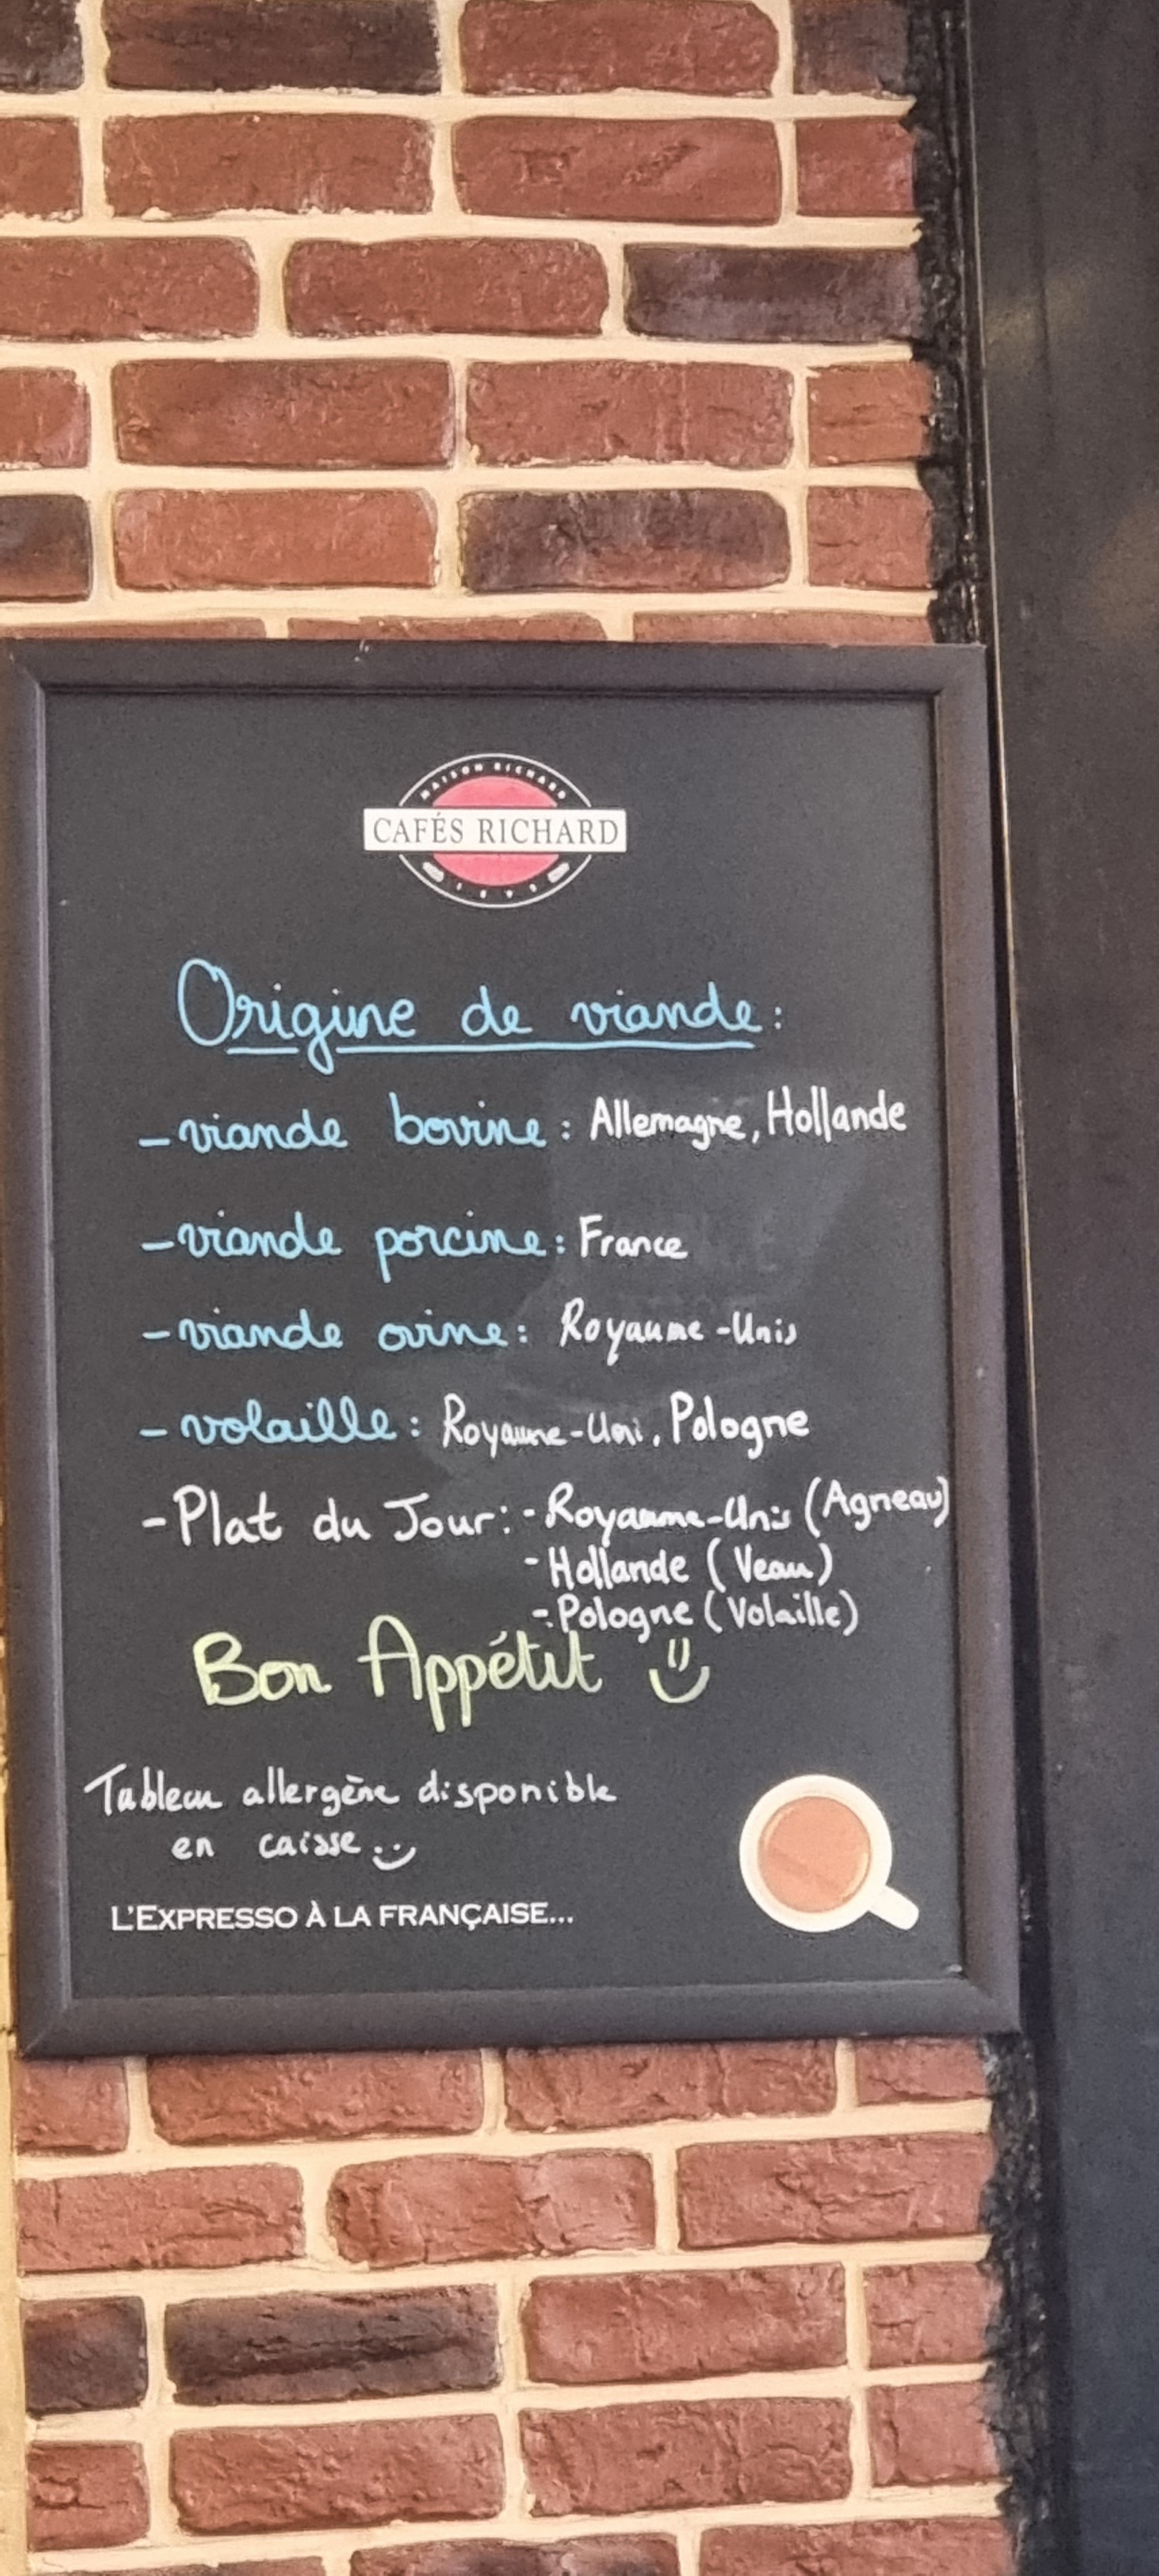 MAISON RICHARD
CAFÉS RICHARD
1892
Origine de viande :
- viande bovine : Allemagne, Hollande
- viande porcine : France
- viande ovine : Royaume-Unis
- volaille : Royaume-Uni, Pologne
- Plat du Jour : - Royaume-Unis (Agneau)
- Hollande (Veau)
- Pologne (Volaille)
Bon Appétit
Tableau allergène disponible
en caisse
L'EXPRESSO À LA FRANÇAISE...